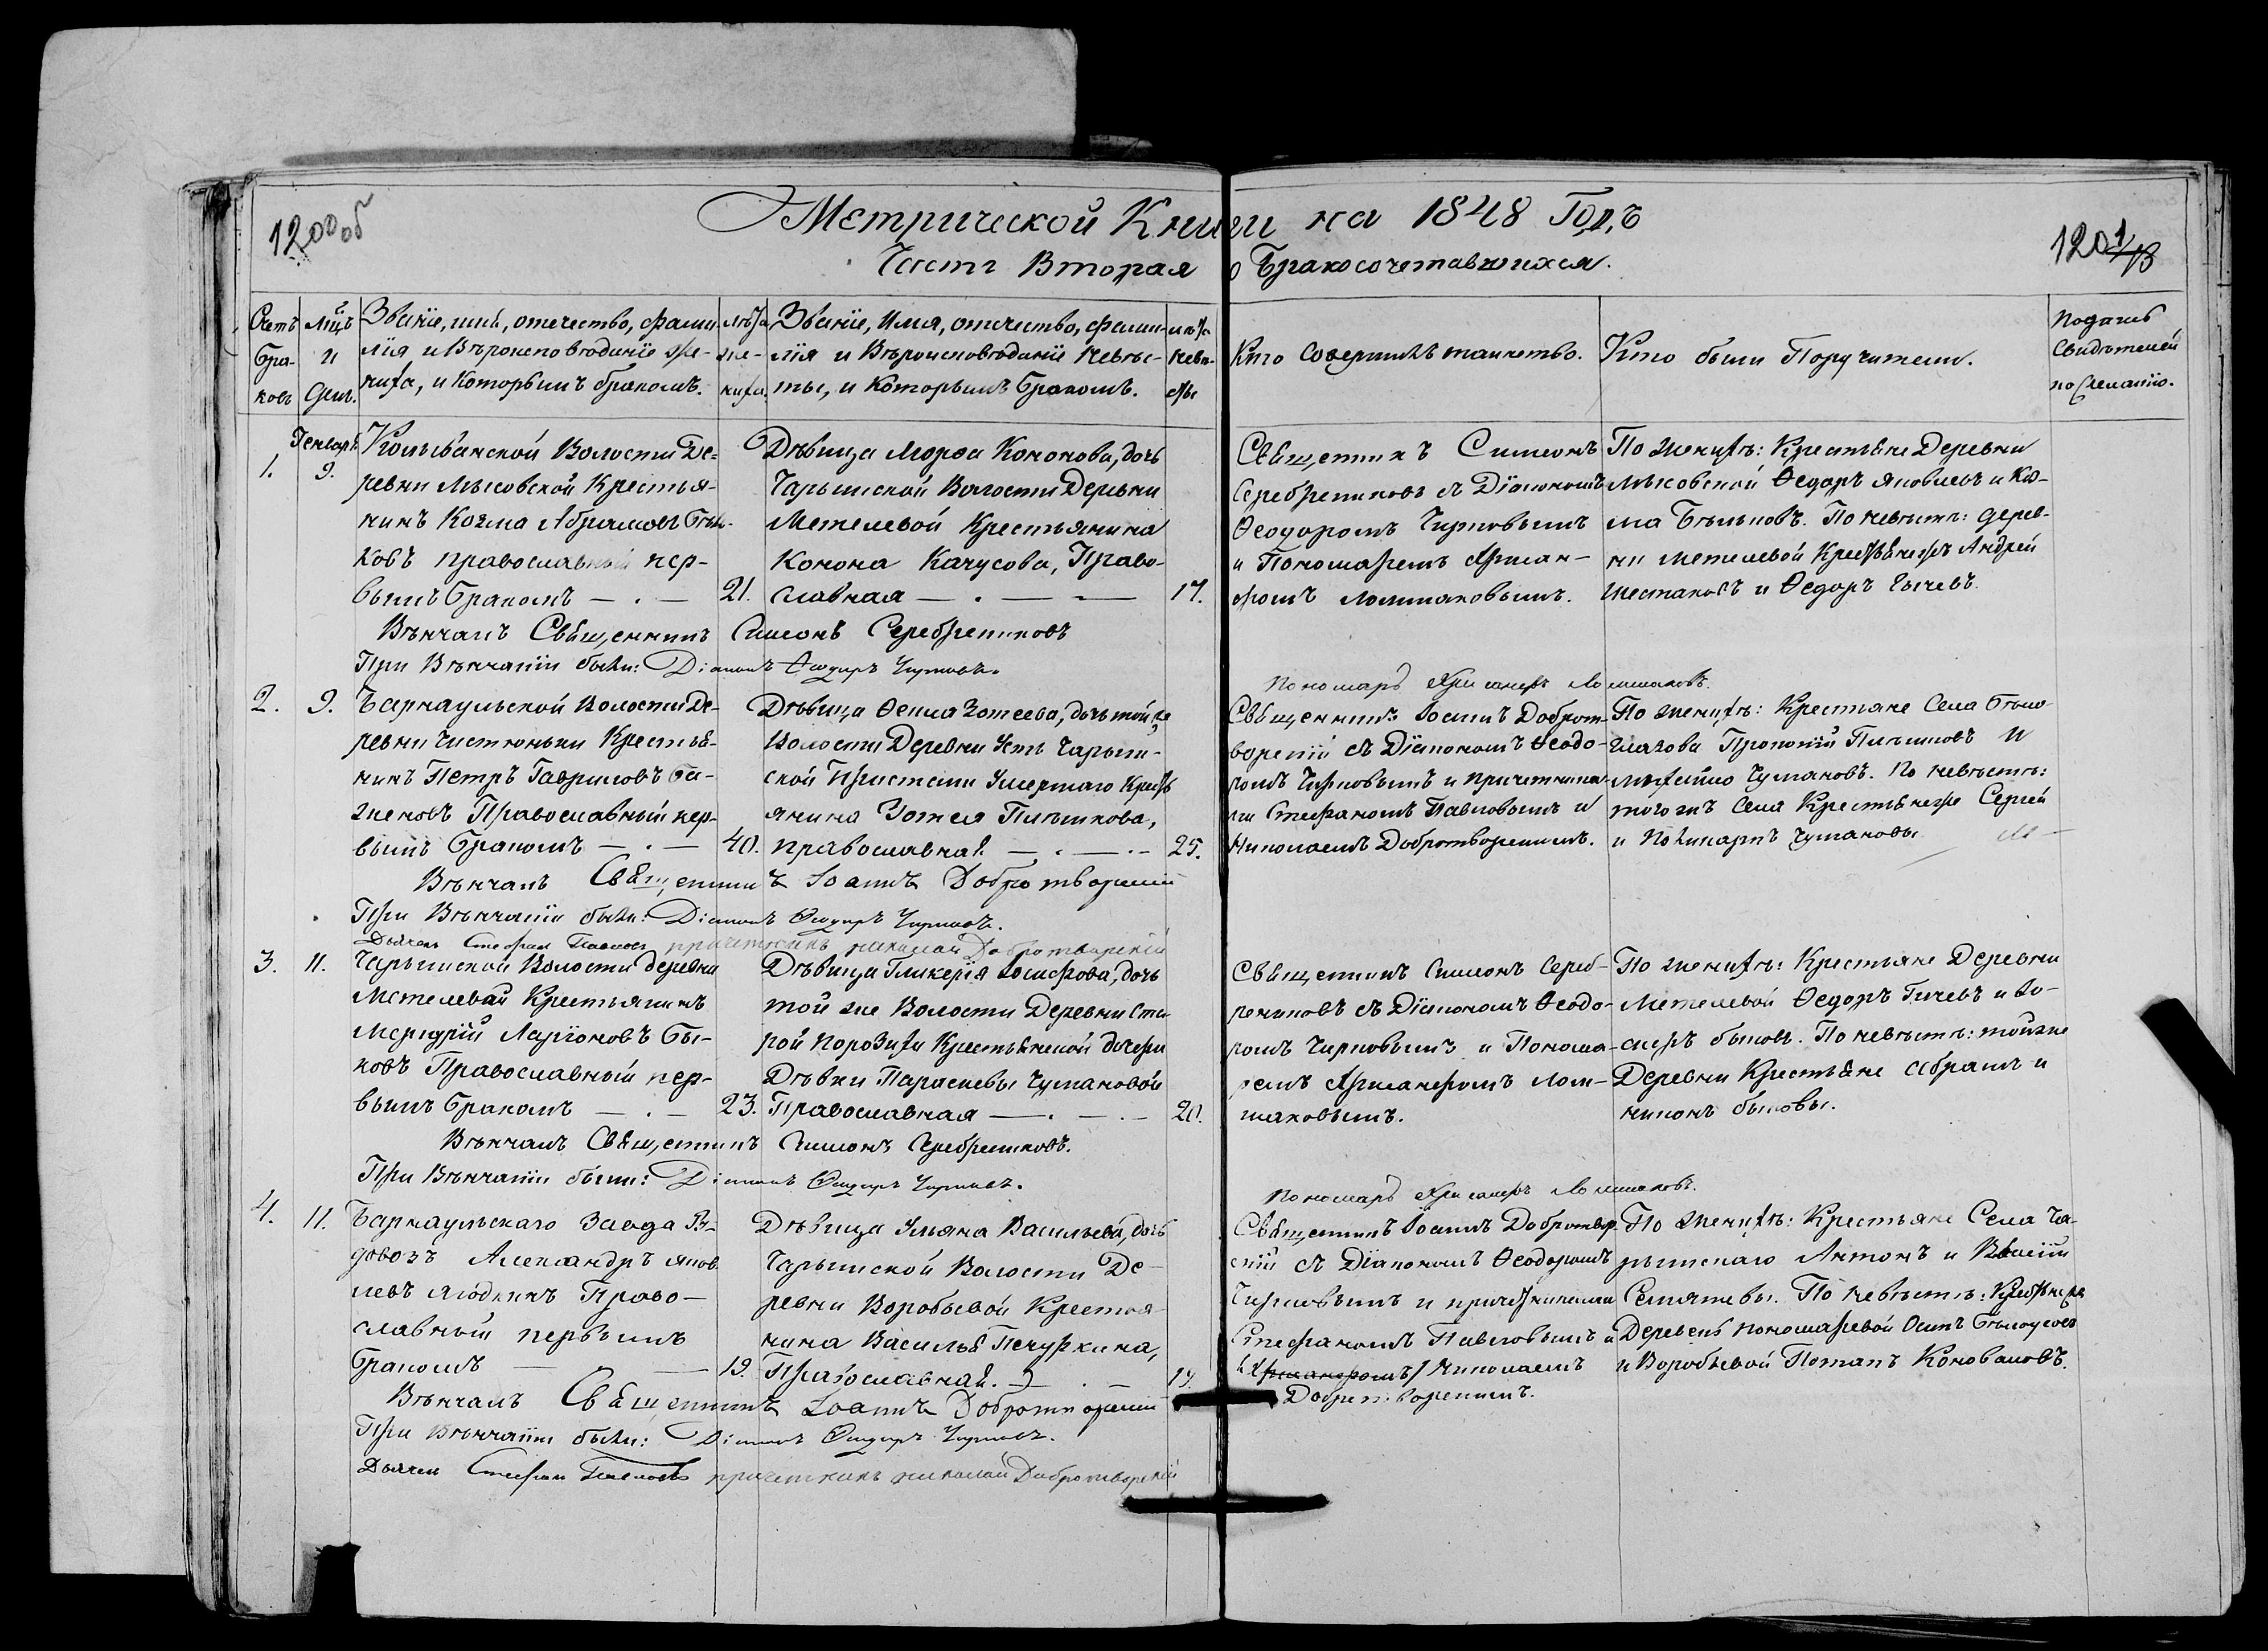 1200об
Метрической Книги на 1848 Годъ
1201
Часть Вторая о Бракосочетавшихся.
Счетъ Бра- ковъ
Мцъ и День.
Званіе, имя, отечество, фами-
лія и Вѣроисповѣданіе же-
ниха, и Которымъ бракомъ.
Лѣта же- ниха.
Званіе, Имя, отечество, фами-
лія и Вѣроисповѣданіе Невѣс-
ты, и Которымъ Бракомъ.
Лѣта Невѣ- сты
Кто Совершилъ таинство.
Кто были Поручители.
Подпись
Свидѣтелей
по Желанію.
1.
Генварь 9.
Колыванской Волости Де-
ревни Мысовской Крестья-
нинъ Козма Абрамовъ Бѣль-
ковъ православный пер-
вымъ Бракомъ — . — 21.
Дѣвица Марфа Кононова, дочь
Чарышской Волости Деревни
Метелевой Крестьянина
Конона Качусова, Право-
славная — . — — 17.
Священникъ Симеонъ
Серебрениковъ съ Діакономъ
Ѳеодоромъ Чирковымъ
и Пономаремъ
Ломшаковымъ.
По женихѣ: Крестьяне Деревни
Мысовской Ѳедоръ Яковлевъ и Коз-
ма Бѣльковъ. По невѣстѣ: дерев-
ни Метелевой Крестьяне Андрей
Шестаковъ и Ѳедоръ Гычевъ.
Вѣнчалъ Священникъ Симеонъ Серебрениковъ
При Вѣнчаніи были: Діаконъ Ѳеодоръ Чирковъ.
Пономарь Ломшаковъ.
2.
9.
Барнаульской Волости Де-
ревни Чистюньки Крестья-
нинъ Петръ Гавриловъ Ба-
женовъ Православный пер-
вымъ Бракомъ — . — 40.
Дѣвица Зотеева, дочь той же
Волости Деревни Усть Чарыш-
ской Пристани Умершаго Кресть
янина Зотея Пилникова,
православная. — . — . — 25.
Священникъ Іоаннъ Добротво-
ворскій съ Діакономъ Ѳеодо-
ромъ Чирковымъ и причетника-
ми Стефаномъ Павловымъ и
Николаемъ Добротворскимъ.
По женихѣ: Крестьяне Села Бѣло-
глазова Прокопій и
Чумаковъ. По невѣстѣ:
тогожъ Села Крестьяне Сергей
и Поликарпъ Чумаковы
Вѣнчалъ Священникъ Іоаннъ Добротворскій
При Вѣнчаніи были: Діаконъ Ѳеодоръ Чирковъ.
Дьячекъ Стефанъ Павловъ причетникъ николай Добротворскій
3.
11.
Чарышской Волости деревни
Метелевой Крестьянинъ
Меркурій Ларіоновъ Бы-
ковъ Православный пер-
вымъ Бракомъ — . — 23.
Дѣвица Гликерія Іосифова, дочь
той же Волости Деревни Ста
рой Порозихи Крестьянской дочери
Дѣвки Парасковьи Чумаковой
Православная — . — . — 20.
Священникъ Симеонъ Сереб-
рениковъ съ Діакономъ Ѳеодо-
ромъ Чирковымъ и Понома-
ремъ Лом-
шаковымъ.
По женихѣ: Крестьяне Деревни
Метелевой Ѳедоръ Гычевъ и Іо-
сифъ быковъ. По невѣстѣ: тойже
Деревни Крестьяне Абрамъ и
никонъ быковы.
Вѣнчалъ Священникъ Симеонъ Серебрениковъ.
При Вѣнчаніи были: Діаконъ Ѳеодоръ Чирковъ.
Пономарь Ломшаковъ.
4.
11.
Барнаульскаго Завода В-
довозъ Александръ Яков
левъ Право-
славный первымъ
Бракомъ — — 19.
Дѣвица Ульяна Васильева, дочь
Чарышской Волости Де-
ревни Воробьевой Крестья-
нина Василья Печуркина,
Православная. — . — 19.
Священникъ Іоаннъ Добротвор-
скій съ Діакономъ Ѳеодоромъ
Чирковымъ и причетниками
Стефаномъ Павловымъ и
Николаемъ
Добротворскимъ.
По женихѣ: Крестьяне Села Ча-
рышскаго Антонъ и Василій
По невѣстѣ: Крестьяне
Деревень Пономаревой Осипъ Бѣлоусовъ
и Воробьевой Потапъ Коноваловъ.
Вѣнчалъ Священникъ Іоаннъ Добротворскій
При Вѣнчаніи были: Діаконъ Ѳеодоръ Чирковъ.
Дьячекъ Стефанъ Павловъ причетникъ николай Добротворскій